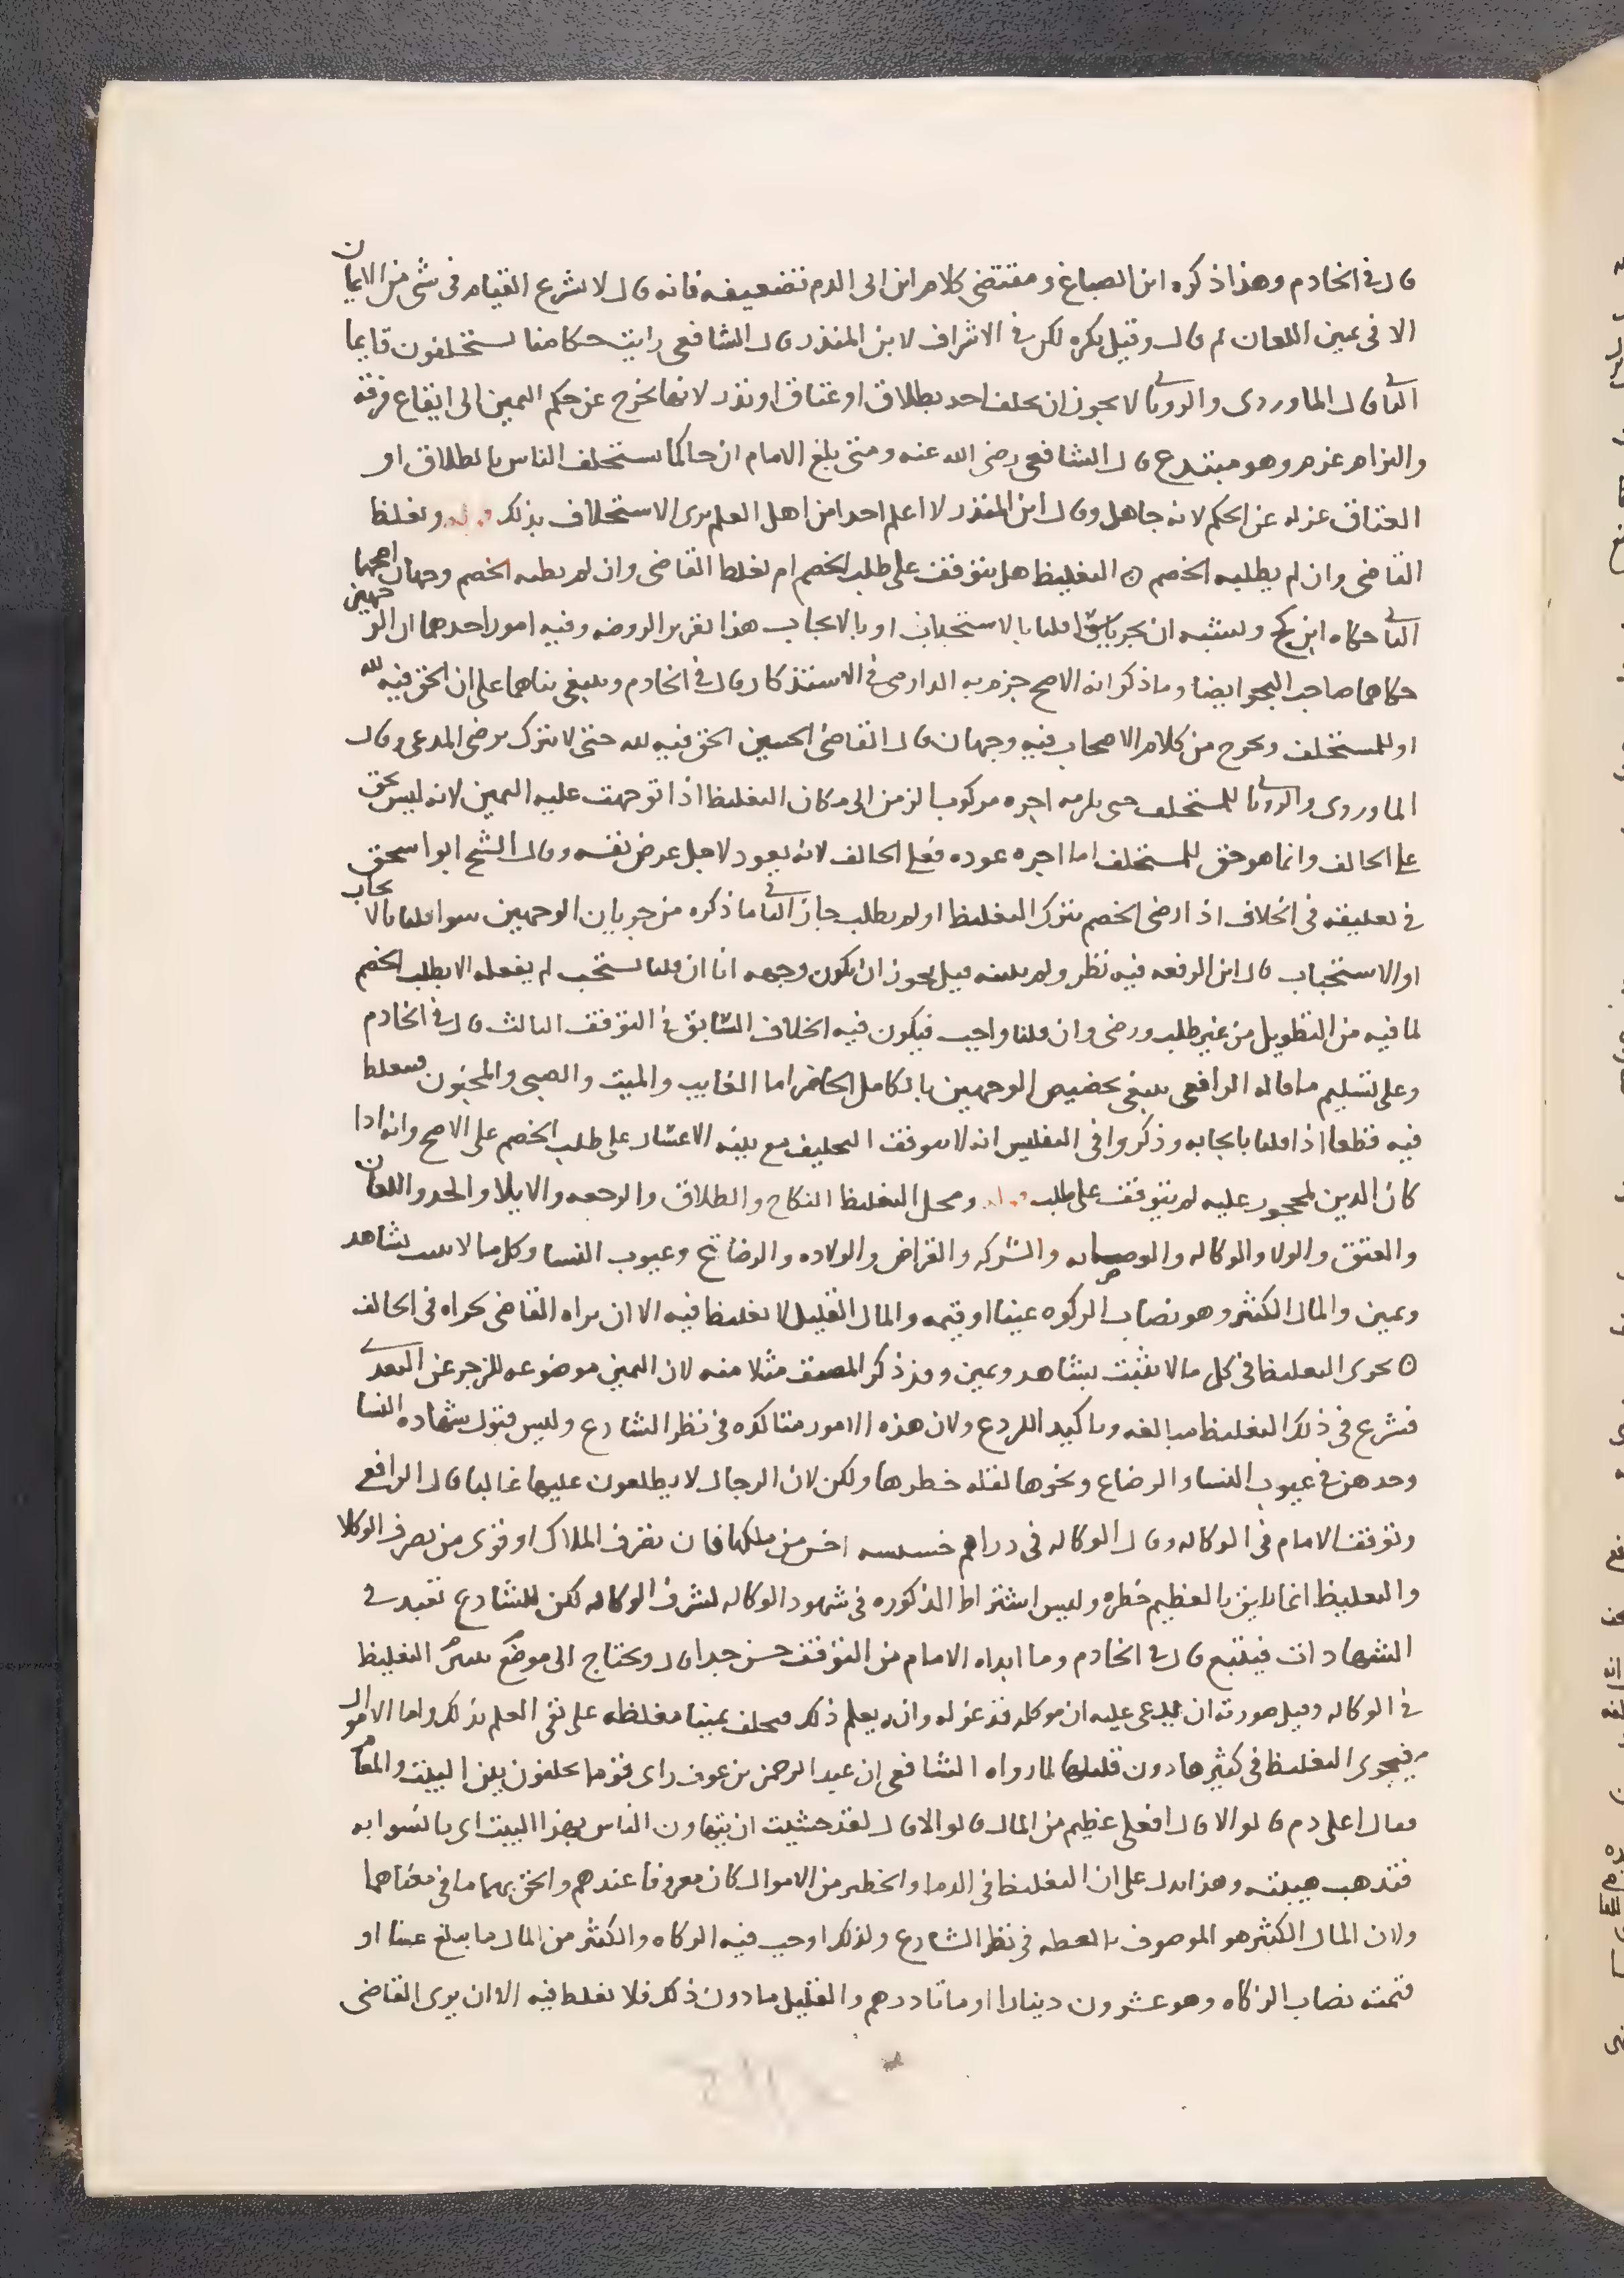 قال في الخادم وهذا ذكره ابن الصباغ ومقتضى كلام ابن ابي الدم تضعيفه فانه قال لا يشرع القيام في شي من الايمان
الا في يمين اللعان ثم قال وقيل يكره لكن في الاشراف لابن المنذر قال الشافعي رايت حكامنا يستحلفون قايما
الثاني قال الماوردي والروياني لا يجوز ان يحلف احد بطلاق او عتاق او نذر لانها تخرج عن حكم اليمين الى ايقاع فرقة
والتزام غرم وهو مبتدع قال الشافعي رضي الله عنه ومتى بلغ الامام ان حاكما يستحلف الناس بالطلاق او
العتاق عزله عن الحكم لانه جاهل وقال ابن المنذر لا اعلم احدا من اهل العلم يرى الاستحلاف بذلك قوله ويغلظ
القاضي وان لم يطلبه الخصم ه التغليظ هل يتوقف على طلب الخصم ام يغلظ القاضي وان لم يطلبه الخصم وجهان اصحهما
الثاني حكاه ابن كج ويشبه ان يجريا سوا قلنا بالاستحباب او بالايجاب هذا تقرير الروضه وفيه امور احدها ان الوجهين
حكاهما صاحب البحر ايضا وما ذكر انه الاصح جزم به الدارمي في الاستذكار قال في الخادم وينبغي بناهما على ان الحق فيه لله
او للمستحلف ويخرج من كلام الاصحاب فيه وجهان قال القاضي الحسين الحق فيه لله حتى لا يترك برضى المدعي وقال
الماوردي والروياني للمستحلف حتى يلزمه اجره مركوب الزمن الى مكان التغليظ اذا توجهت عليه اليمين لانه ليس بحق
على الحالف وانما هو حق للمستحلف اما اجره عوده فعلى الحالف لانه يعود لاجل غرض نفسه وقال الشيخ ابو اسحق
في تعليقه في الخلاف اذا رضي الخصم بترك التغليظ او لم يطلب جاز الثاني ما ذكره من جريان الوجهين سوا قلنا بالايجاب
او الاستحباب قال ابن الرفعه فيه نظر ولم يبينه قيل يجوز ان يكون وجهه انا ان قلنا يستحب لم يفعله الا بطلب الخصم
لما فيه من التطويل من غير طلب ورضى وان قلنا واجب فيكون فيه الخلاف السابق في التوقف الثالث قال في الخادم
وعلى تسليم ما قاله الرافعي ينبغي تخصيص الوجهين بالكامل الحاضر اما الغايب والميت والصبي والمجنون فيغلظ
فيه قطعا اذا قلنا بايجابه وذكروا في التفليس انه لا يتوقف التحليف مع بينه الاعسار على طلب الخصم على الاصح وانه اذا
كان الدين لمحجور عليه لم يتوقف على طلب قوله ومحل التغليظ النكاح والطلاق والرجعه والايلا والحد واللعان
والعتق والولا والوكاله والوصايه والشركه والقراض والولاده والرضاع وعيوب النسا وكل ما لا يثبت بشاهد
ويمين والمال الكثير وهو نصاب الزكوه عينا او قيمه والمال القليل لا تغليظ فيه الا ان يراه القاضي لجراه في الحالف
ه يجرى التغليظ في كل ما لا يثبت بشاهد ويمين وقد ذكر المصنف مثلا منه لان اليمين موضوعه للزجر عن التعدي
فشرع في ذلك التغليظ مبالغه وتاكيدا للردع ولان هذه الامور متاكده في نظر الشارع وليس قبول شهاده النسا
وحدهن في عيوب النسا والرضاع ونحوها لقله خطرها ولكن لان الرجال لا يطلعون عليها غالبا قال الرافعي
وتوقف الامام في الوكاله وقال الوكاله في دراهم خسيسه اخس من ملكها فان تصرف الملاك اقوى من تصرف الوكلا
والتغليظ انما يليق بالعظيم خطره وليس اشتراط الذكوره في شهود الوكاله لشرف الوكاله لكن للشارع تعبد في
الشهادات فيتبع قال في الخادم وما ابداه الامام من التوقف حسن جدا قال ويحتاج الى موضع التغليظ
في الوكاله وقيل صورته ان يدعي عليه ان موكله قد عزله وانه يعلم ذلك فيحلف يمينا مغلظه على نفي العلم بذلك واما الاموال
فيجرى التغليظ في كثيرها دون قليلها لما رواه الشافعي ان عبد الرحمن بن عوف راى قوما يحلفون بين البيت والمقام
فقال اعلى دم قالوا لا قال افعلى عظيم من المال قالوا لا قال لقد خشيت ان يتهاون الناس بهذا البيت اى يانسوا به
فتذهب هيبته وهذا يدل على ان التغليظ في الدما والخطير من الاموال كان معروفا عندهم والحق بهما ما في معناهما
ولان المال الكثير هو الموصوف بالعظمه في نظر الشارع ولذلك اوجب فيه الزكاه والكثير من المال ما يبلغ عينا او
قيمته نصاب الزكاه وهو عشرون دينارا او مائتا درهم والقليل ما دون ذلك فلا تغليظ فيه الا ان يرى القاضي